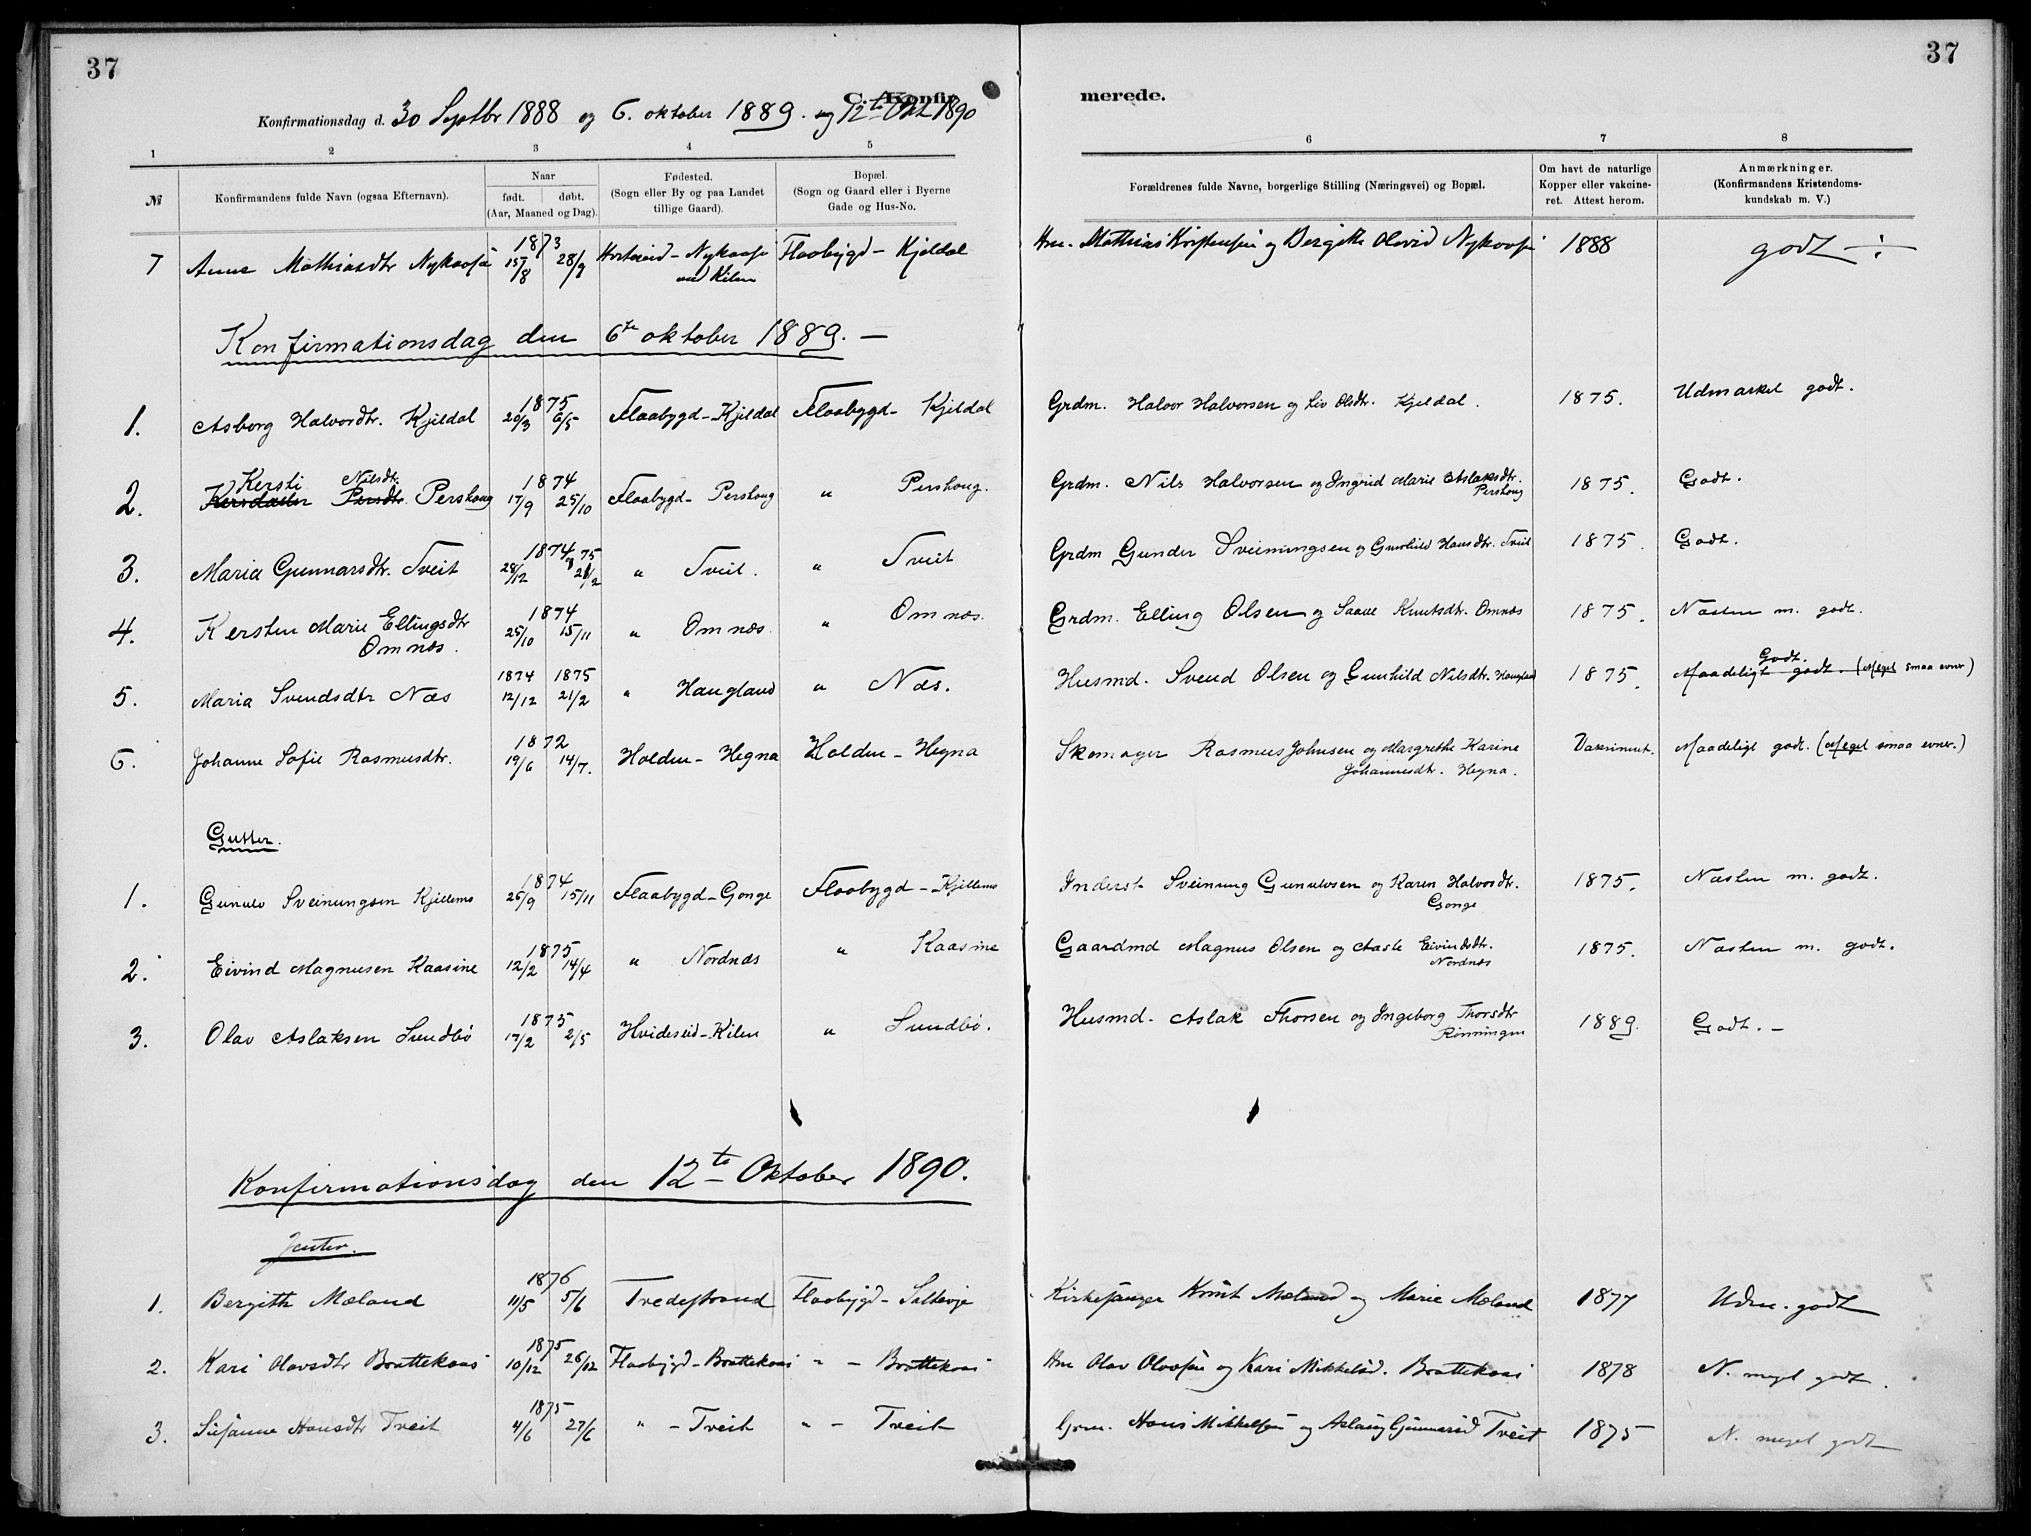 37
37
C. Konfir
merede.
Konfirmationsdag d. 30 Septbr 1888 og 6. oktober 1889. og 12te Okt 1890
1 2 3 4 5 6 7 8
№ Konfirmandens fulde Navn (ogsaa Efternavn). Naar født. døbt. (Aar, Maaned og Dag). Fødested. (Sogn eller By og paa Landet tillige Gaard). Bopæl. (Sogn og Gaard eller i Byerne Gade og Hus-No. Forældrenes fulde Navne, borgerlige Stilling (Næringsvei) og Bopæl. Om havt de naturlige Kopper eller vakcineret. Attest herom. Anmærkninger. (Konfirmandens Kristendomskundskab m. V.)
7 Anne Mathiasdtr Nykaasa 1873 15/8 28/9 Nykaasa ved Kilen Flaabygd - Kjeldal Hm. Mathias Kristensen og Bergitte Olavsd Nykaasa 1888 godt ÷
Konfirmationsdag den 6te oktober 1889. —
1. Asborg Halvordtr. Kjeldal 1875 20/3 6/5 Flaabygd - Kjeldal Flaabygd - Kjeldal Grdm. Halvor Halvorsen og Liv Olsdtr. Kjeldal. 1875. Udmarket godt.
2. Kersti Nilsdtr. Pershaug 1874 17/9 25/10 Flaabygd - Pershoug " Pershoug. Grdm. Nils Halvorsen og Ingrid Marie Aslaksdtr. Pershoug 1875. Godt.
3. Maria Gunnarsdtr. Tveit 1874 28/12 75 21/2 " Tveit. " Tveit Grdm Gunder Sveinungsen og Gunhild Hansdtr. Tveit 1875. Godt.
4. Kersten Marie Ellingsdtr Omnæs. 1874 25/10 15/11 " Omnæs. " Omnæs. Grdm. Elling Olsen og Saave Knutsdtr. Omnæs 1875. Næsten m. godt.
5. Maria Svendsdtr Næs 1874 12/12 1875 21/2 " Haugland " Næs. Husmd. Svend Olsen og Gunhild Nilsdtr. Haugland 1875. Godt. Maadeligt godt. (Meget smaa evner)
6. Johanne Sofie Rasmusdtr. 1872 19/6 14/7. Holden - Hegna Holden - Hegna Skomager Rasmus Johnsen og Margrethe Karine Johannesdtr. Hegna. Vakcineret. Maadeligt godt. (Meget smaa evner.)
Gutter.
1. Gunulv Sveinungsen Kjillemo 1874 26/9 15/11 Flaabygd - Gonge Flaabygd - Kjillemo Inderst Sveinung Gunulvsen og Karen Halvordtr. Gonge 1875. Næsten m. godt.
2. Eivind Magnusen Kaasine 1875 12/2 14/4 " Nordnæs " Kaasine Gaardmd Magnus Olsen og Aaste Eivindsdtr. Nordnæs 1875. Næsten m. godt.
3. Olav Aslaksen Sundbø 1875 17/2 2/5 Hvideseid - Kilen " Sundbø. Husmd. Aslak Thorsen og Ingeborg Thorsdtr Rønningen 1889. Godt. -
Konfirmationsdag den 12te Oktober 1890.
Jenter.
1. Bergitte Mæland 1876 11/5 5/6 Tvedestrand Flaabygd - Kirkesanger Knut Mæland og Marie Mæland 1877 Udm. godt
2. Kari Olavsdtr Brattekaas 1875 10/12 26/12 Flaabygd - Brattekaas " - Brattekaas Hm Olav Olavsen og Kari Mikkelsd. Brattekaas 1878 N. meget godt.
3. Susanne Hansdtr Tveit 1875 4/6 27/6 " - Tveit " - Tveit Grm. Hans Mikkelsen og Aslaug Gunnarsd Tveit 1875 N. meget godt